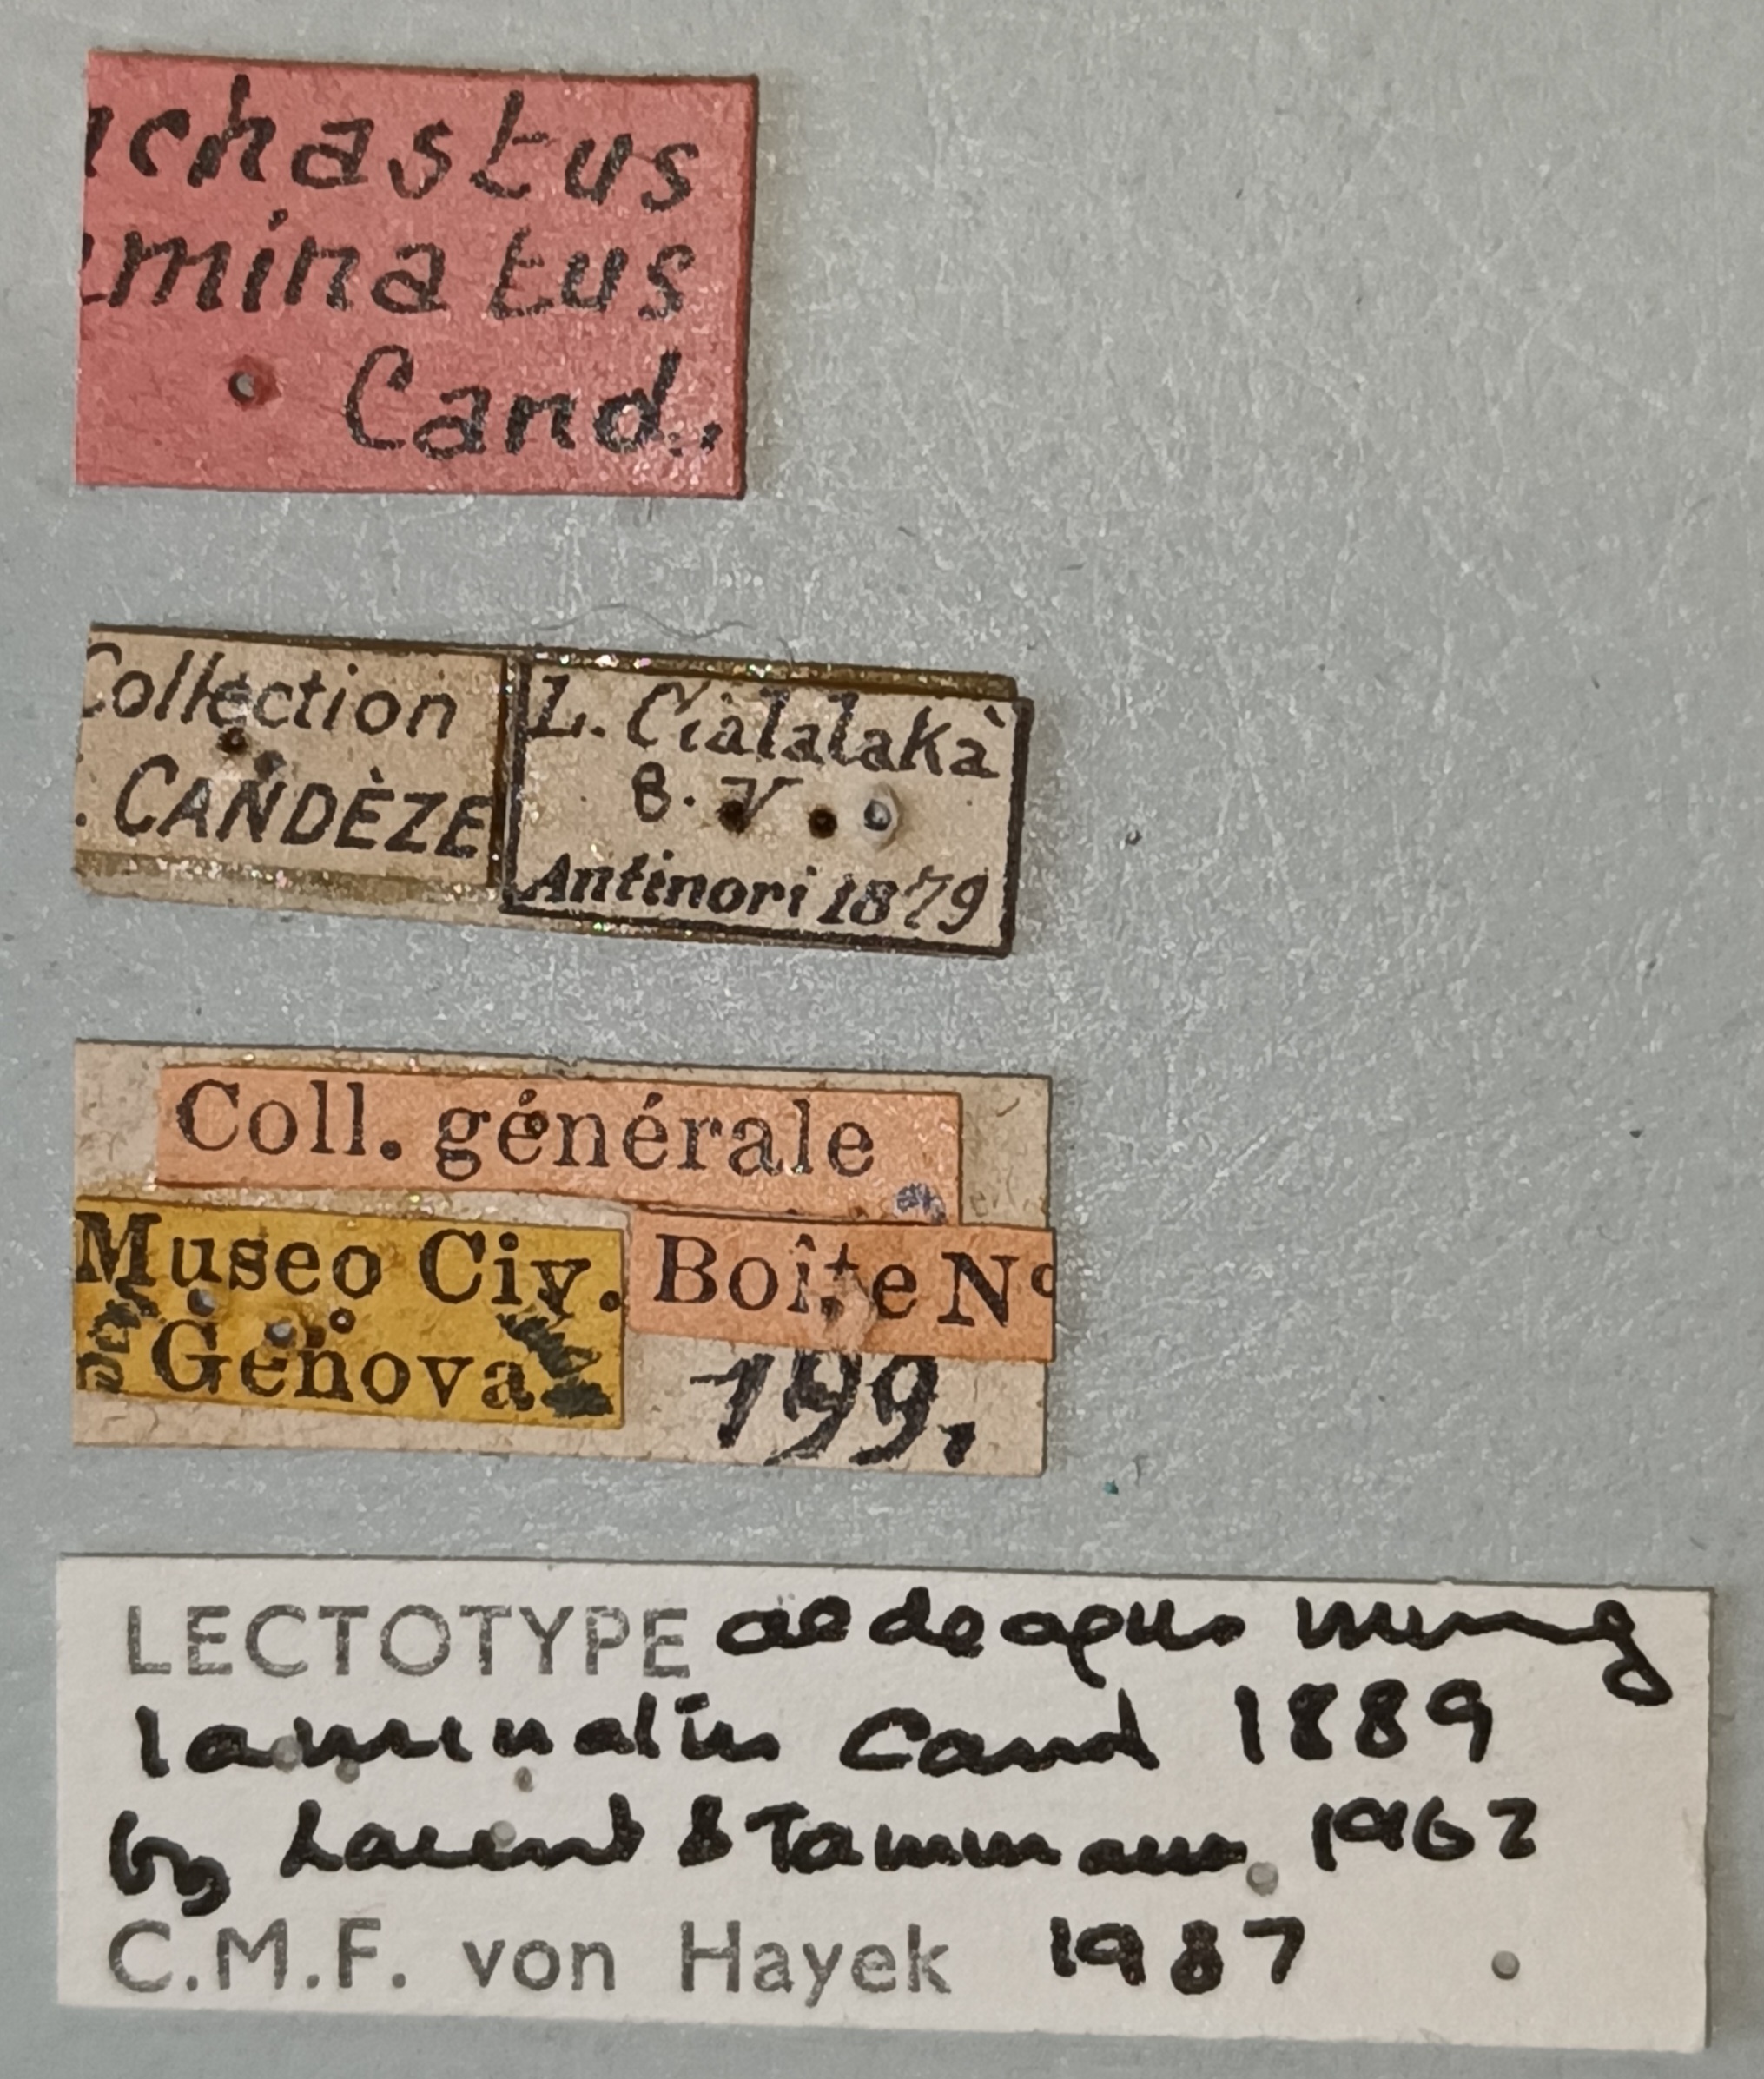 chastus
minatus
Cand.
Collection
. CANDÈZE
L. Cialalakà
8. V.
Antinori 1879
Coll. générale
Museo Civ.
Genova
Boîte Nº
199.
LECTOTYPE aedeagus
laminatus Cand 1889
by Laurent & 1962
C.M.F. von Hayek 1987